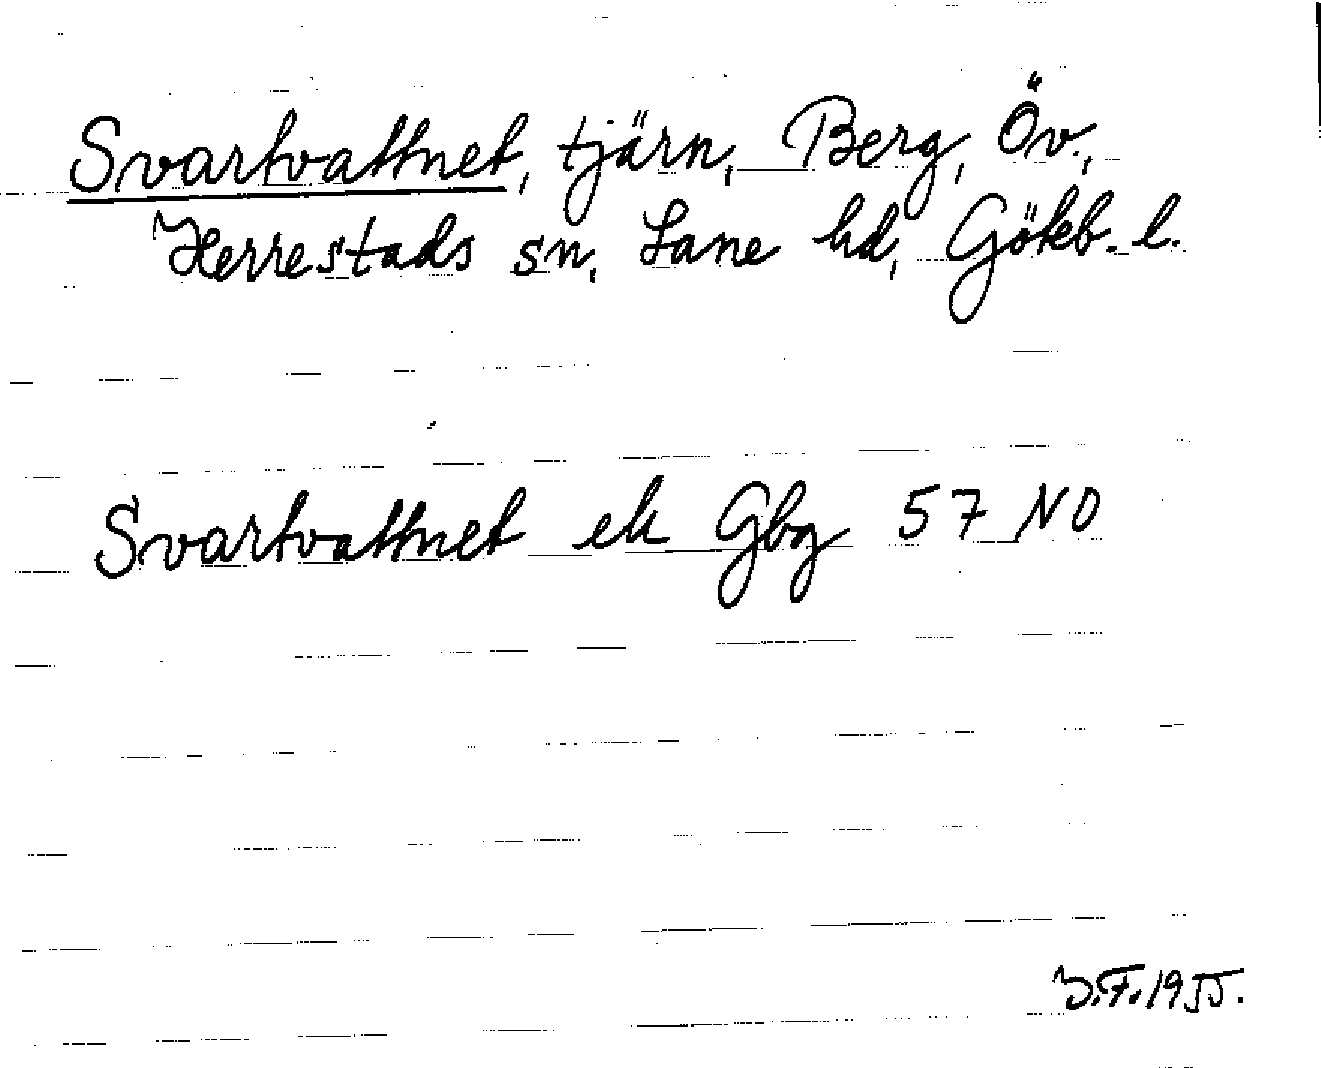 Svartvattnet, tjärn, Berg, Öv.,
Herrestads sn, Lane hd, Gökb. l.
Svartvattnet ek Gbg 57 NO
J.F. 1955.